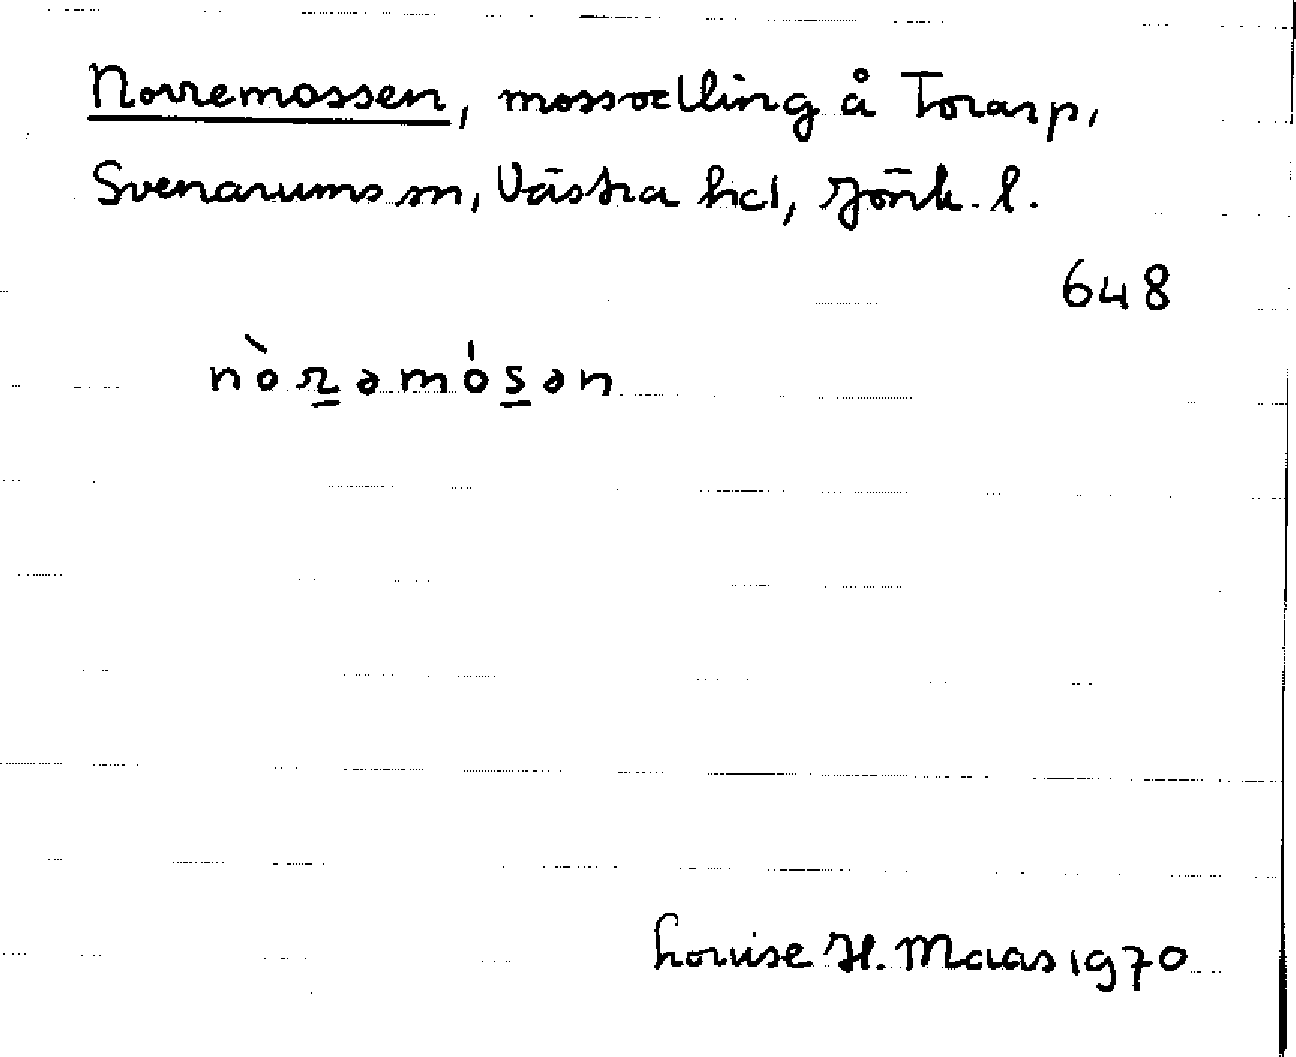 Norremossen, mossodling å Torarp,
Svenarums sn, Västra hd, Jönk. l.
648
nòrəmósən
Louise H. Maas 1970